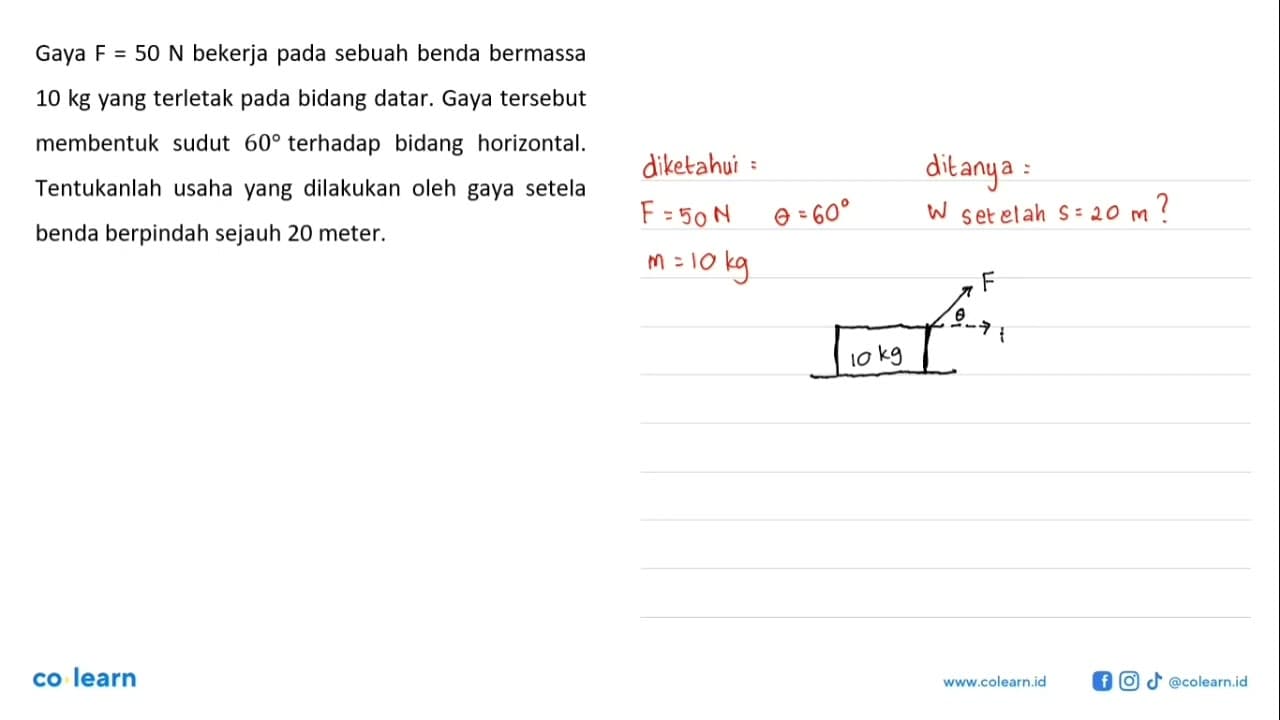 Gaya F = 50 N bekerja pada sebuah benda bermassa
10 kg yang terletak pada bidang datar. Gaya tersebut
membentuk sudut 60° terhadap bidang horizontal.
Tentukanlah usaha yang dilakukan oleh gaya setela
benda berpindah sejauh 20 meter.
diketahui :
F = 50 N θ = 60°
m = 10 kg
ditanya :
W setelah s = 20 m ?
F
θ
10 kg
co learn
www.colearn.id
@colearn.id